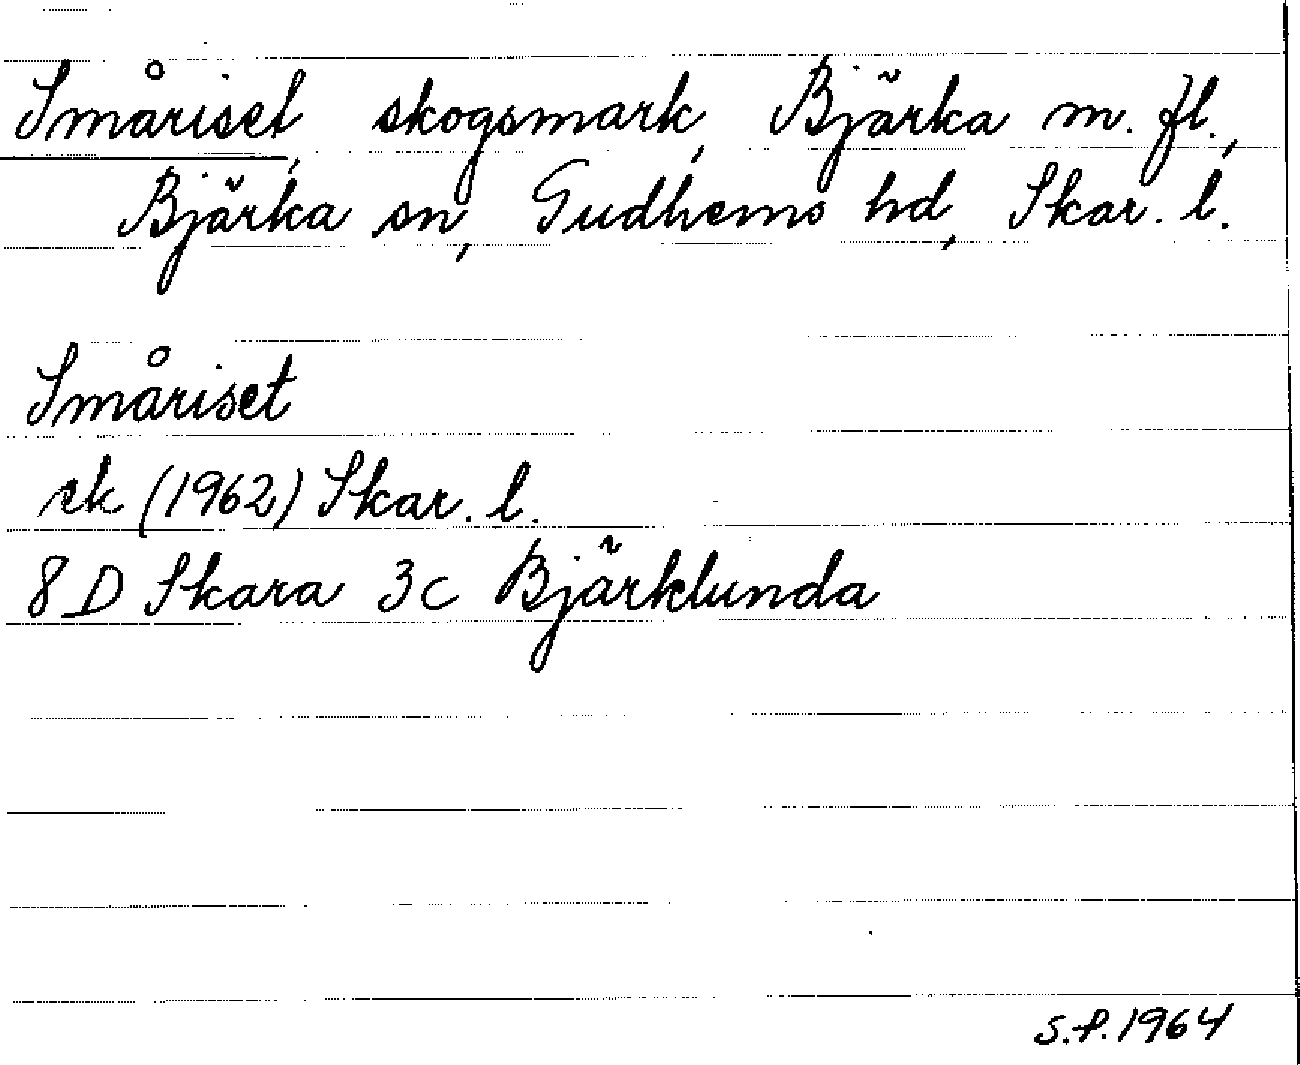 Småriset, skogsmark, Bjärka m. fl.,
Bjärka sn, Gudhems hd, Skar. l.
Småriset
ek (1962) Skar. l.
8D Skara 3c Bjärklunda
S.P. 1964